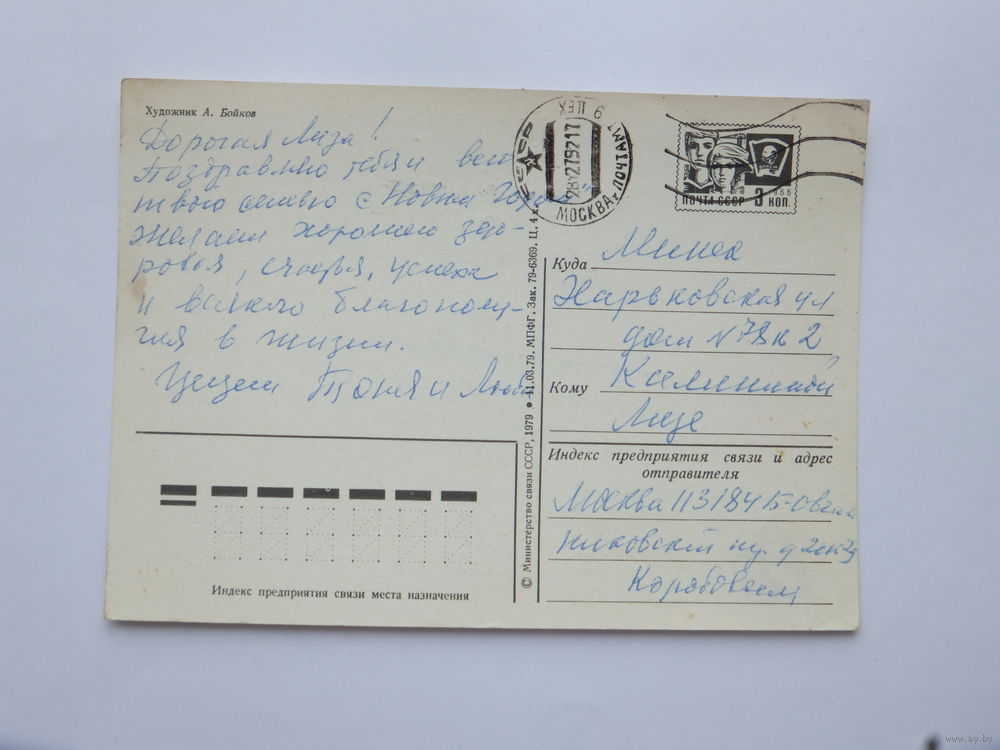 Художник А. Бойков
Дорогая Лиза!
Поздравляю тебя и всю
твою семью с Новым Годом
Желаем хорошего здо-
ровья, счастья, успеха
и всякого благополу-
чия в жизни.
Целуем Тоня и Люба
СССР
МОСКВА-ПОЧТАМТ
9 ЦЕХ
281279217
ПОЧТА СССР 3 КОП.
1966
Куда Минск
Харьковская ул
дом N 78 к 2
Кому
Лизе
Индекс предприятия связи и адрес
отправителя
Москва 113184
© Министерство связи СССР, 1979 • 11.03.79. МПФГ. Зак. 79-6369. Ц. 4 к.
Индекс предприятия связи места назначения
www.ay.by